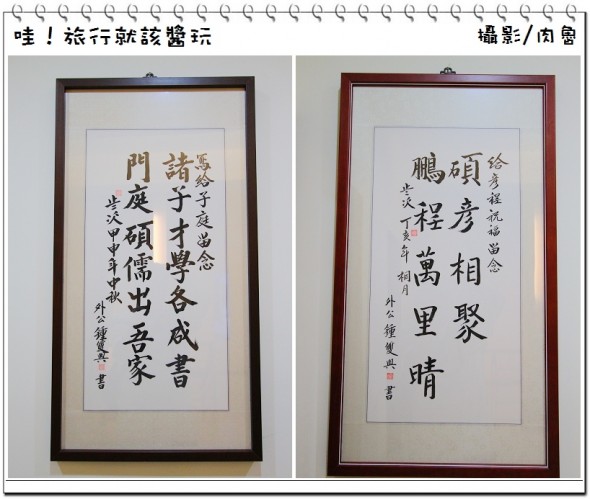 哇！旅行就該醬玩
攝影/肉魯
寫給子庭留念
諸子才學各成書
門庭碩儒出吾家
歲次甲申年中秋
外公鍾雙興書
給彥程祝福留念
碩彥相聚
鵬程萬里晴
歲次丁亥年桐月
外公鍾雙興書